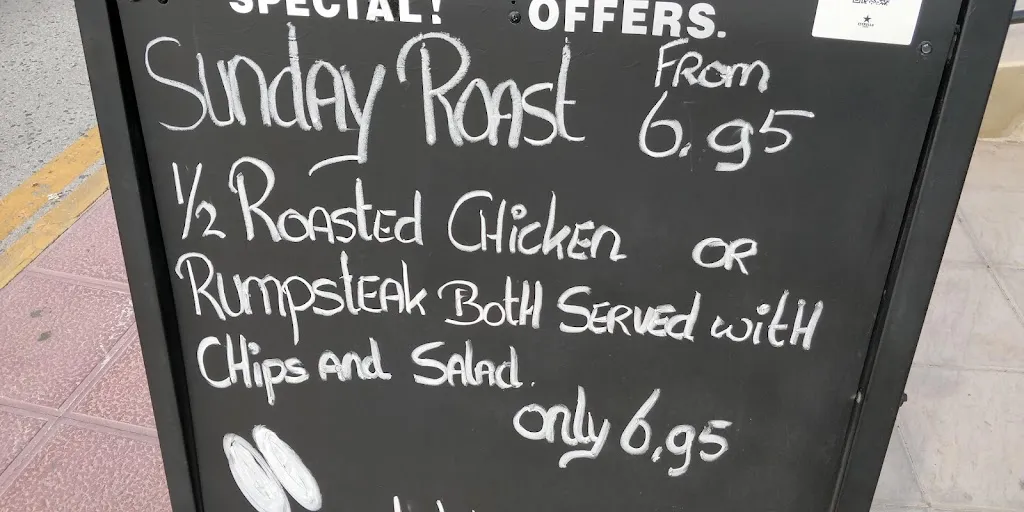 SPECIAL! OFFERS.
Sunday Roast From 6.95
1/2 Roasted Chicken OR
Rumpsteak Both Served with
Chips and Salad.
only 6,95